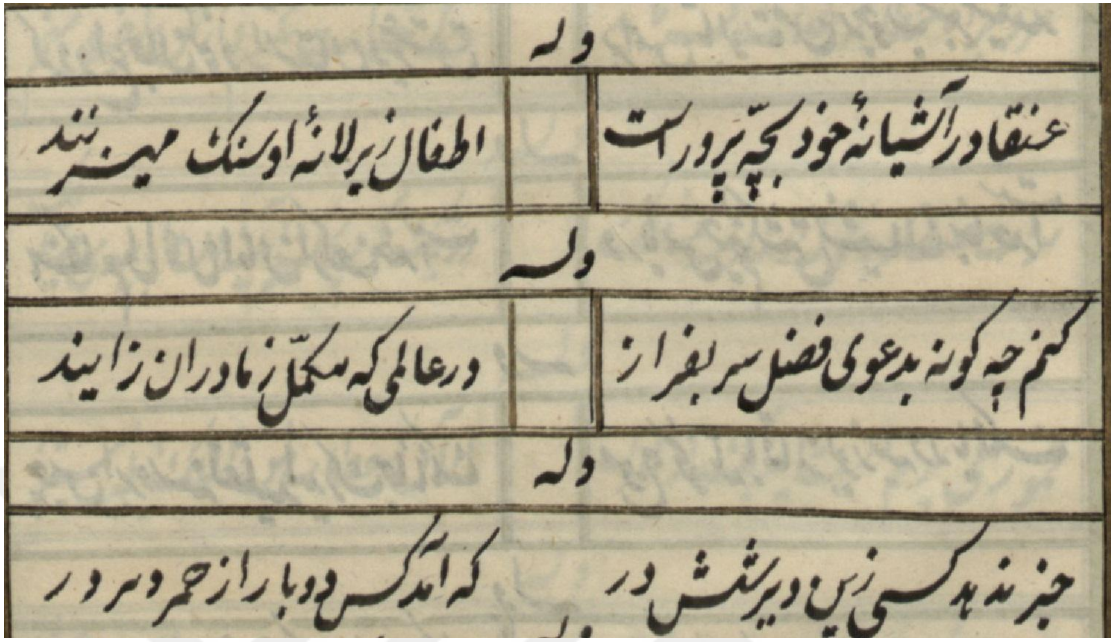 وله
عنقا در آشیانهٔ خود بچّه پرور است اطفال زیر لانهٔ او سنک میزنند
وله
کنم چه کونه بدعوی فضل سر بفراز در عالمی که مکمّل ز مادران زایند
وله
خبر ندهد کسی زین دیر شش در که آمد کس دوبار از